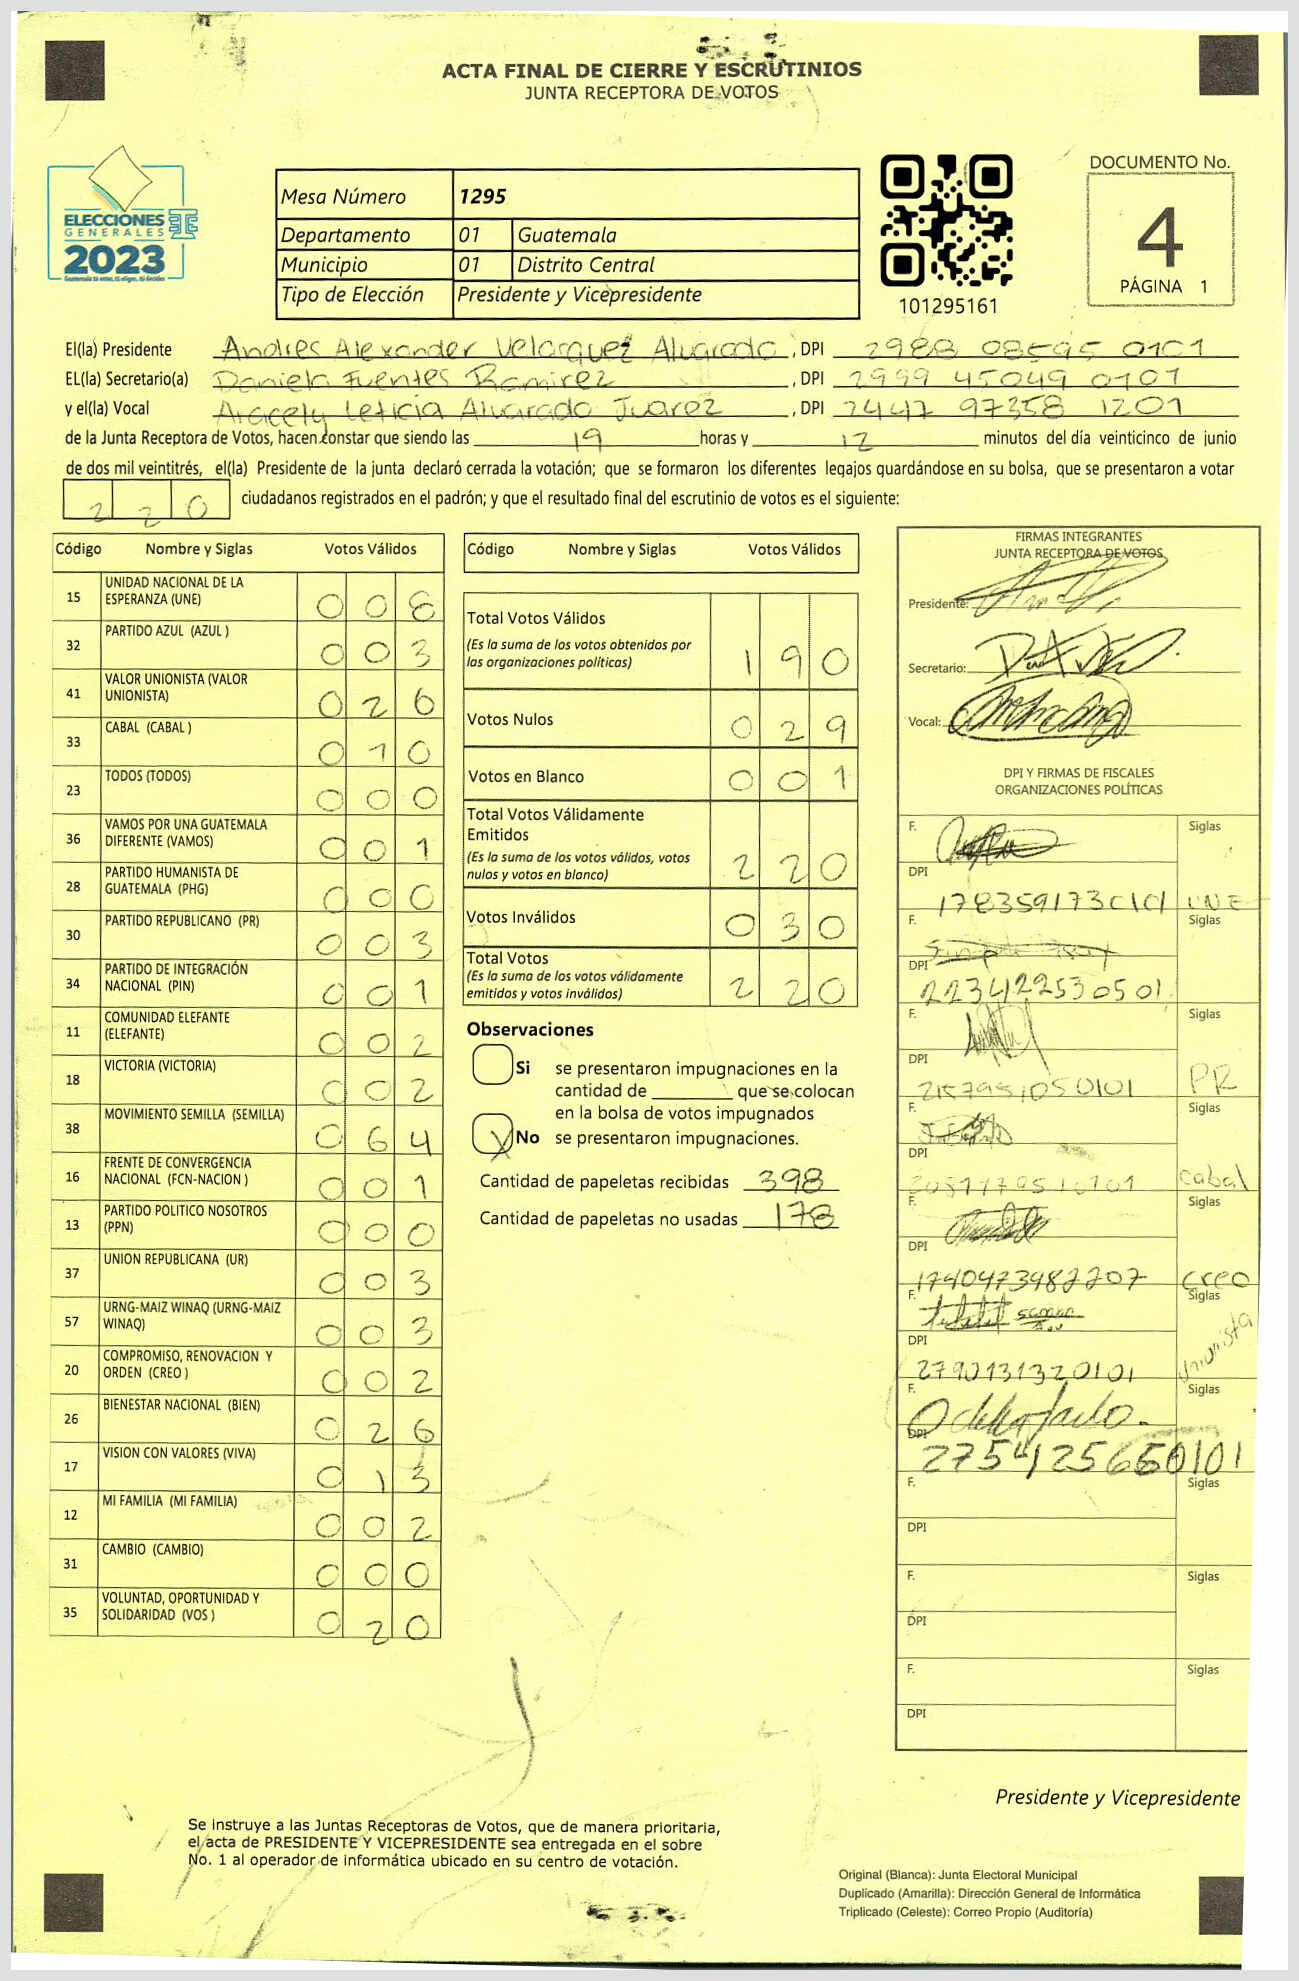 ACTA FINAL DE CIERRE Y ESCRUTINIOS
JUNTA RECEPTORA DE VOTOS
ELECCIONES
GENERALES
2023
Mesa Número 1295
Departamento 01 Guatemala
Municipio 01 Distrito Central
Tipo de Elección Presidente y Vicepresidente
101295161
DOCUMENTO No.
4
PÁGINA 1
El(la) Presidente Andres Alexander Velasquez Alvarado, DPI 2988 08595 0101
EL(la) Secretario(a) Daniela Fuentes Ramirez, DPI 2999 45049 0101
y el(la) Vocal Aracely Leticia Alvarado Juarez, DPI 2447 97358 1201
de la Junta Receptora de Votos, hacen constar que siendo las 19 horas y 12 minutos del día veinticinco de junio
de dos mil veintitrés, el(la) Presidente de la junta declaró cerrada la votación; que se formaron los diferentes legajos guardándose en su bolsa, que se presentaron a votar
220 ciudadanos registrados en el padrón; y que el resultado final del escrutinio de votos es el siguiente:
Código Nombre y Siglas Votos Válidos
15 UNIDAD NACIONAL DE LA ESPERANZA (UNE) 0 0 8
32 PARTIDO AZUL (AZUL ) 0 0 3
41 VALOR UNIONISTA (VALOR UNIONISTA) 0 2 6
33 CABAL (CABAL ) 0 1 0
23 TODOS (TODOS) 0 0 0
36 VAMOS POR UNA GUATEMALA DIFERENTE (VAMOS) 0 0 1
28 PARTIDO HUMANISTA DE GUATEMALA (PHG) 0 0 0
30 PARTIDO REPUBLICANO (PR) 0 0 3
34 PARTIDO DE INTEGRACIÓN NACIONAL (PIN) 0 0 1
11 COMUNIDAD ELEFANTE (ELEFANTE) 0 0 2
18 VICTORIA (VICTORIA) 0 0 2
38 MOVIMIENTO SEMILLA (SEMILLA) 0 6 4
16 FRENTE DE CONVERGENCIA NACIONAL (FCN-NACION ) 0 0 1
13 PARTIDO POLITICO NOSOTROS (PPN) 0 0 0
37 UNION REPUBLICANA (UR) 0 0 3
57 URNG-MAIZ WINAQ (URNG-MAIZ WINAQ) 0 0 3
20 COMPROMISO, RENOVACION Y ORDEN (CREO ) 0 0 2
26 BIENESTAR NACIONAL (BIEN) 0 2 6
17 VISION CON VALORES (VIVA) 0 1 3
12 MI FAMILIA (MI FAMILIA) 0 0 2
31 CAMBIO (CAMBIO) 0 0 0
35 VOLUNTAD, OPORTUNIDAD Y SOLIDARIDAD (VOS ) 0 2 0
Código Nombre y Siglas Votos Válidos
Total Votos Válidos 1 9 0
(Es la suma de los votos obtenidos por
las organizaciones políticas)
Votos Nulos 0 2 9
Votos en Blanco 0 0 1
Total Votos Válidamente
Emitidos 2 2 0
(Es la suma de los votos válidos, votos
nulos y votos en blanco)
Votos Inválidos 0 30
Total Votos 2 2 0
(Es la suma de los votos válidamente
emitidos y votos inválidos)
Observaciones
Si se presentaron impugnaciones en la
cantidad de ________ que se colocan
en la bolsa de votos impugnados
X No se presentaron impugnaciones.
Cantidad de papeletas recibidas 398
Cantidad de papeletas no usadas 178
FIRMAS INTEGRANTES
JUNTA RECEPTORA DE VOTOS
Presidente:
Secretario:
Vocal:
DPI Y FIRMAS DE FISCALES
ORGANIZACIONES POLÍTICAS
F. Siglas
DPI 1783591730101 UNE
F. Siglas
DPI 2234122530501
F. Siglas
DPI 2157951050101 PR
F. Siglas
DPI cabal
F. Siglas
DPI 1740473982207 creo
F. Siglas
DPI 2790131320101 Unionista
F. Siglas
DPI 2754125660101
F. Siglas
DPI
F. Siglas
DPI
F. Siglas
DPI
Presidente y Vicepresidente
Se instruye a las Juntas Receptoras de Votos, que de manera prioritaria,
el acta de PRESIDENTE Y VICEPRESIDENTE sea entregada en el sobre
No. 1 al operador de informática ubicado en su centro de votación.
Original (Blanca): Junta Electoral Municipal
Duplicado (Amarilla): Dirección General de Informática
Triplicado (Celeste): Correo Propio (Auditoría)